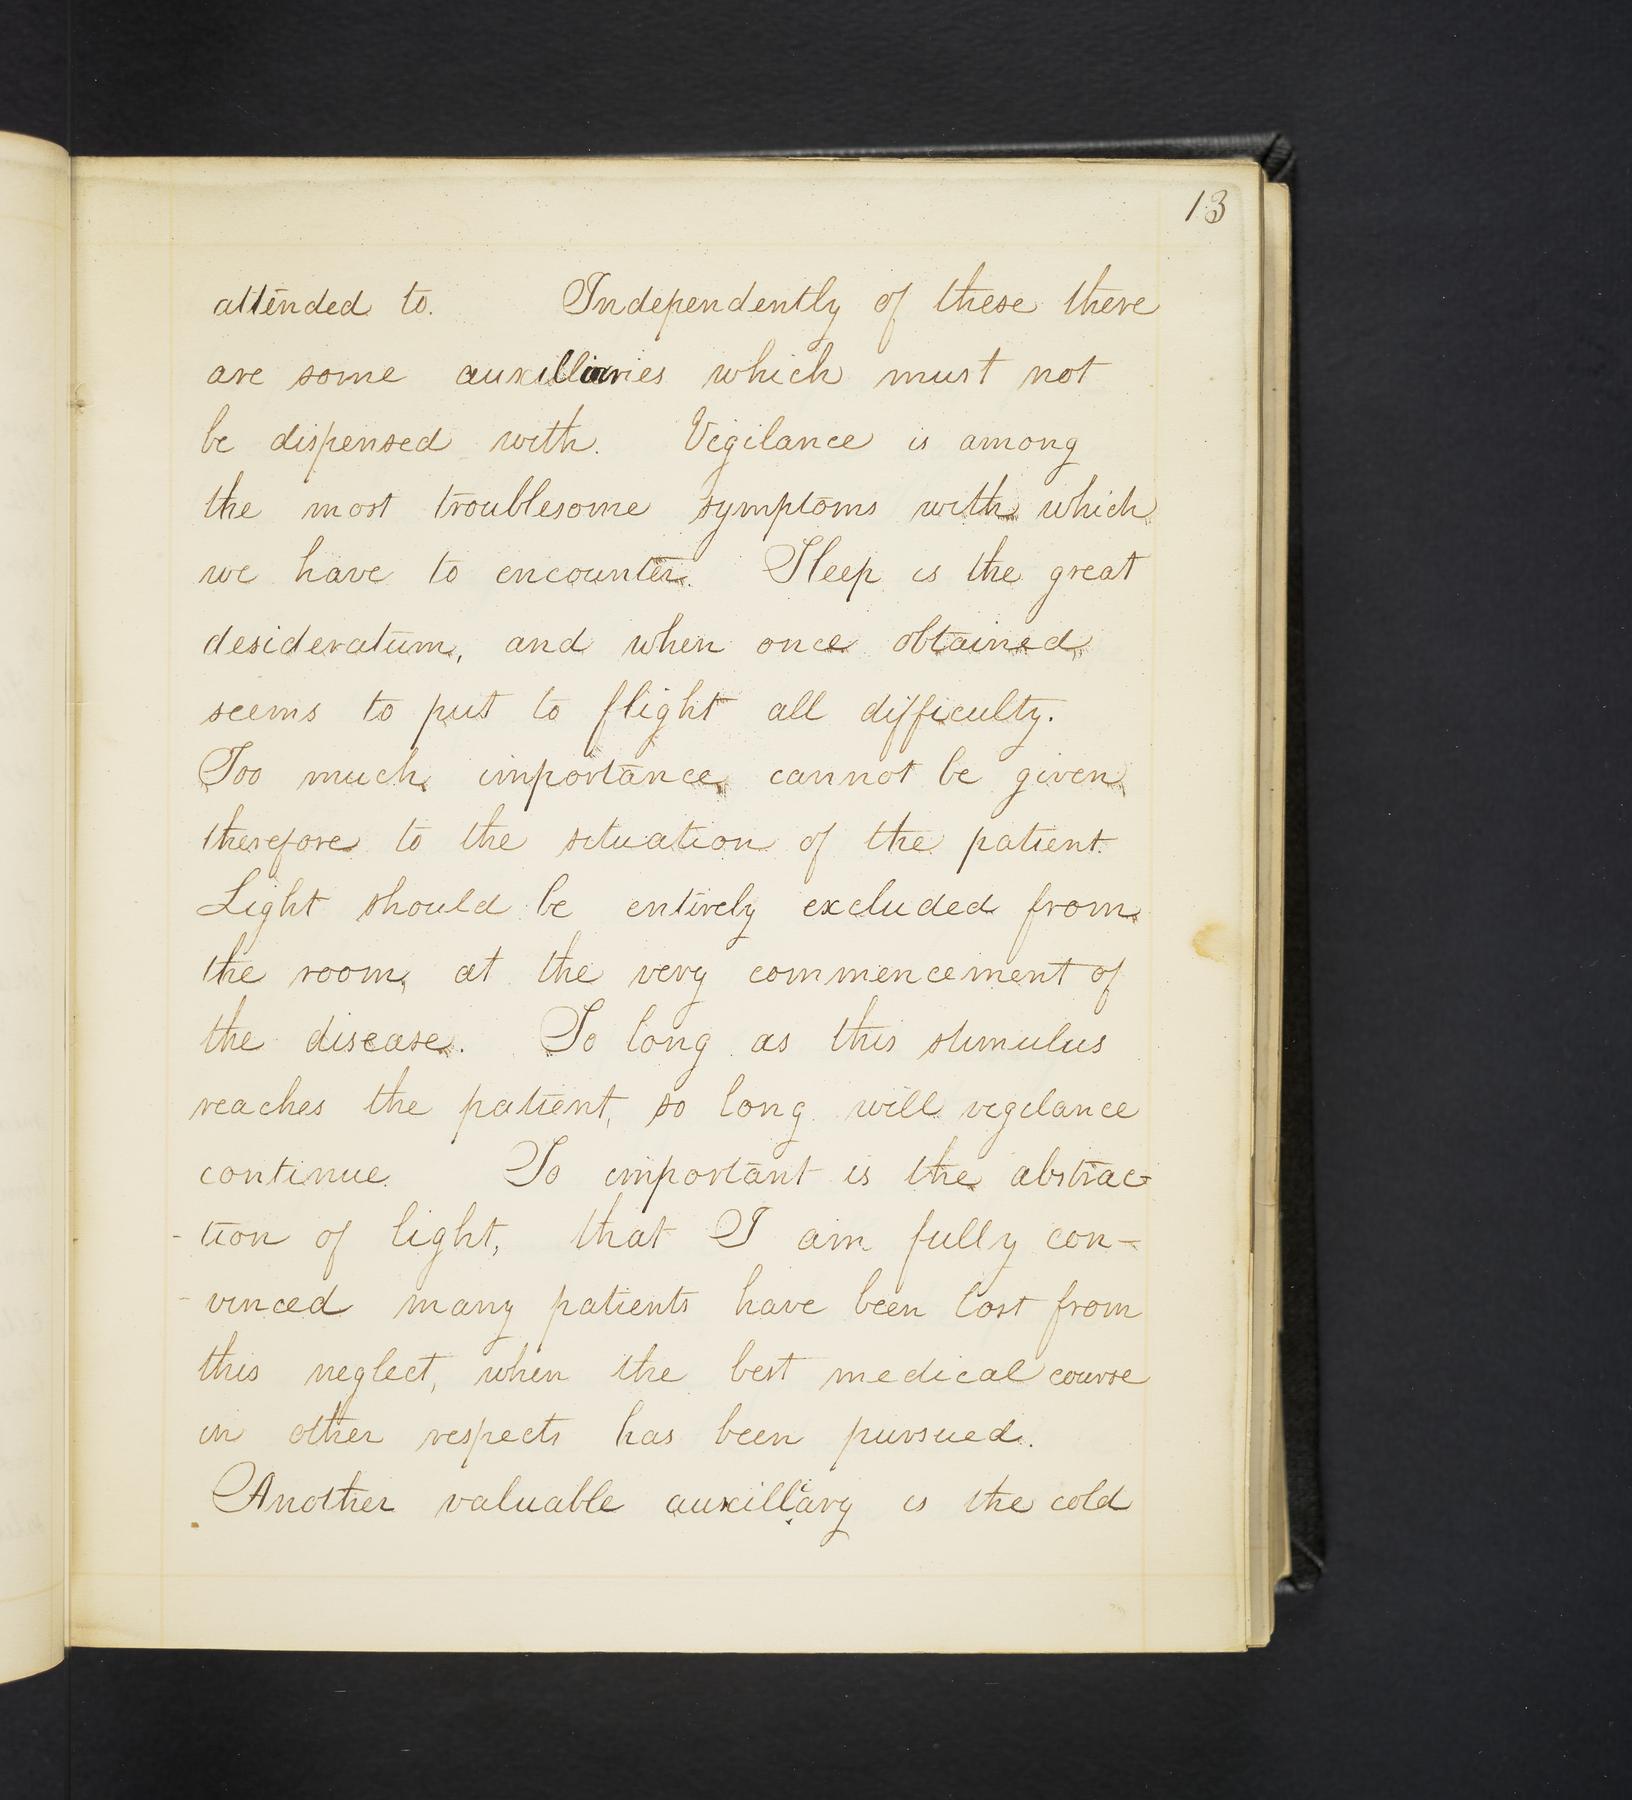 13
attended to. Independently of these there
are some auxilliaries which must not
be dispensed with. Vigilance is among
the most troublesome symptoms with which
we have to encounter. Sleep is the great
desideratum, and when once obtained
seems to put to flight all difficulty.
Too much importance cannot be given
therefore to the situation of the patient.
Light should be entirely excluded from
the room, at the very commencement of
the disease. So long as this stimulus
reaches the patient, so long will vigilance
continue. So important is the abstrac-
-tion of light, that I am fully con-
-vinced many patients have been lost from
this neglect, when the best medical course
in other respects has been pursued.
Another valuable auxilliary is the cold